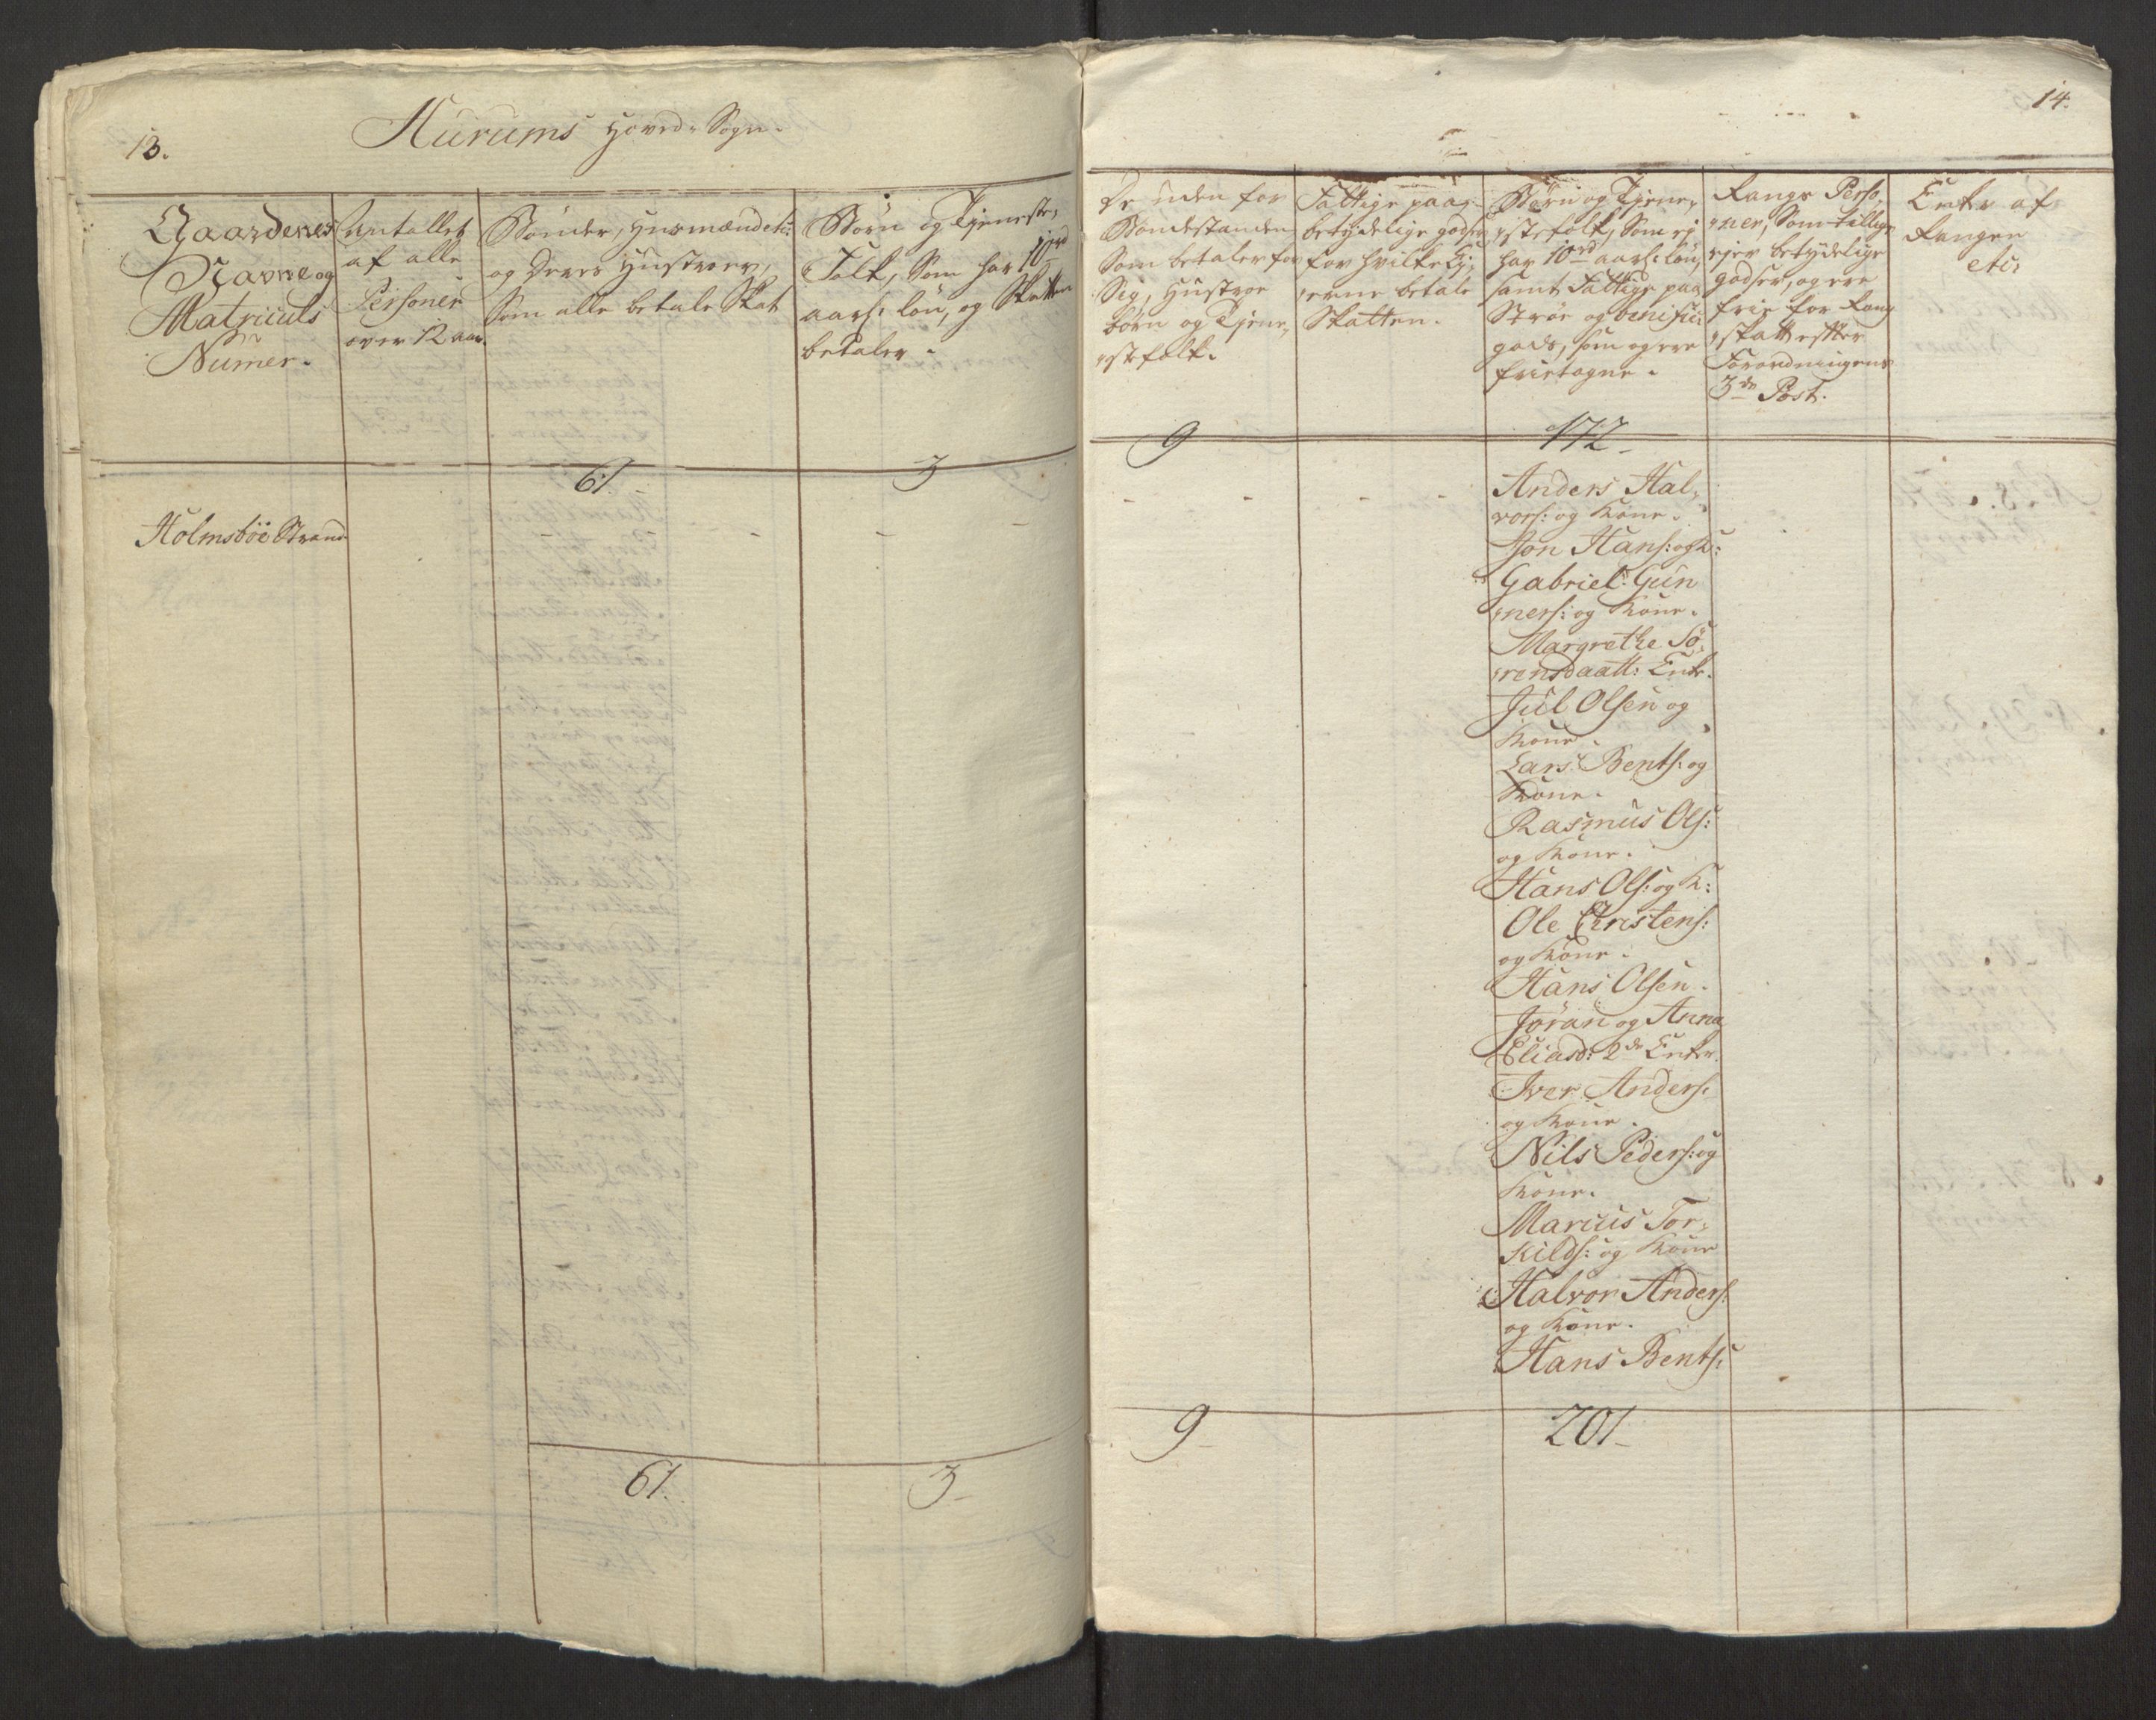 13.
Hurums Hoved-Sogn.
Gaardenes
Navne og
Matriculs
Numer.
Antallet
af alle
Personer
over 12 aar.
Bönder, Husmænd etc:
og Deres Hustroer,
Som alle betale Skat
Börn og Tjeneste,
Folk, Som har 10rd
aarl: lön, og Skatten
betaler.
61.
3
Holmsböe Strand
61.
3
14.
De uden for
Bondestanden
Som betaler for
Sig, Hustroe
börn og Tjene,
stefolk.
Fattige paa
betydelige godser
for hvilke Ej,
erne betale
Skatten.
Börn og Tjene,
stefolk, Som ej
har 10rd aarl: lön,
samt Fattige paa
Ströe og benifici
gods, som og ere
frietagne.
Rangs Perso,
ner, Som tillige
ejer betydelige
godser, og ere
frie for Rang
skatt efter
Forordningens
3de Post.
Enke af
Rangen
etc:
9
172
Anders Hal,
vors: og Kone.
Jon Hans: og K:
Gabriel Gun
ners: og Kone.
Margrethe Sö,
rensdaatt: Enke.
Jul Olsen og
Kone.
Lars Bents: og
Kone.
Rasmus Ols:
og Kone.
Hans Ols: og K:
Ole Christens:
og Kone.
Hans Olsen.
Jöran og Anna
Eliasd: 2de Enker.
Iver Anders:
og Kone.
Nils Peders: og
Kone.
Marcus Tor,
kilds: og Kone
Halvor Anders:
og Kone.
Hans Bents:
9
201